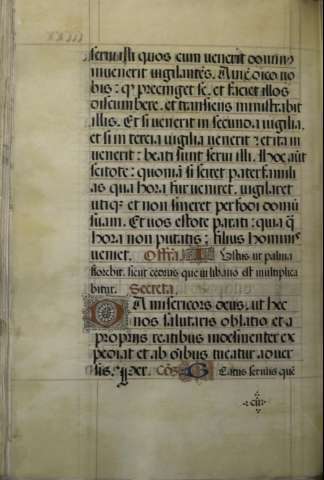 servi illi quos cum venerit dominus
invenerit vigilantes. Amē dico vo
bis: qꝫ precinget se. et faciet illos
discumbere. et transiens ministrabit
illis. Et si venerit in secunda vigilia.
et si in tercia vigilia venerit et ita in
venerit: beati sunt servi illi. Hoc aūt
scitote: quoniā si sciret paterfamili
as qua hora fur veniret. vigilaret
utiqꝫ et non sineret perfodi domū
suam. Et vos estote parati: quia q̄
hora non putatis: filius hominis
veniet. Offa. Iustus ut palma
florebit. sicut cedrus que in libano est multiplica
bitur. Secreta.
DA misericors deus. ut hec
nos salutaris oblatio et a
propriis reatibus indesinenter ex
pediat et ab oībus tueatur adver
sis. Per. Cōō Beatus servus quē